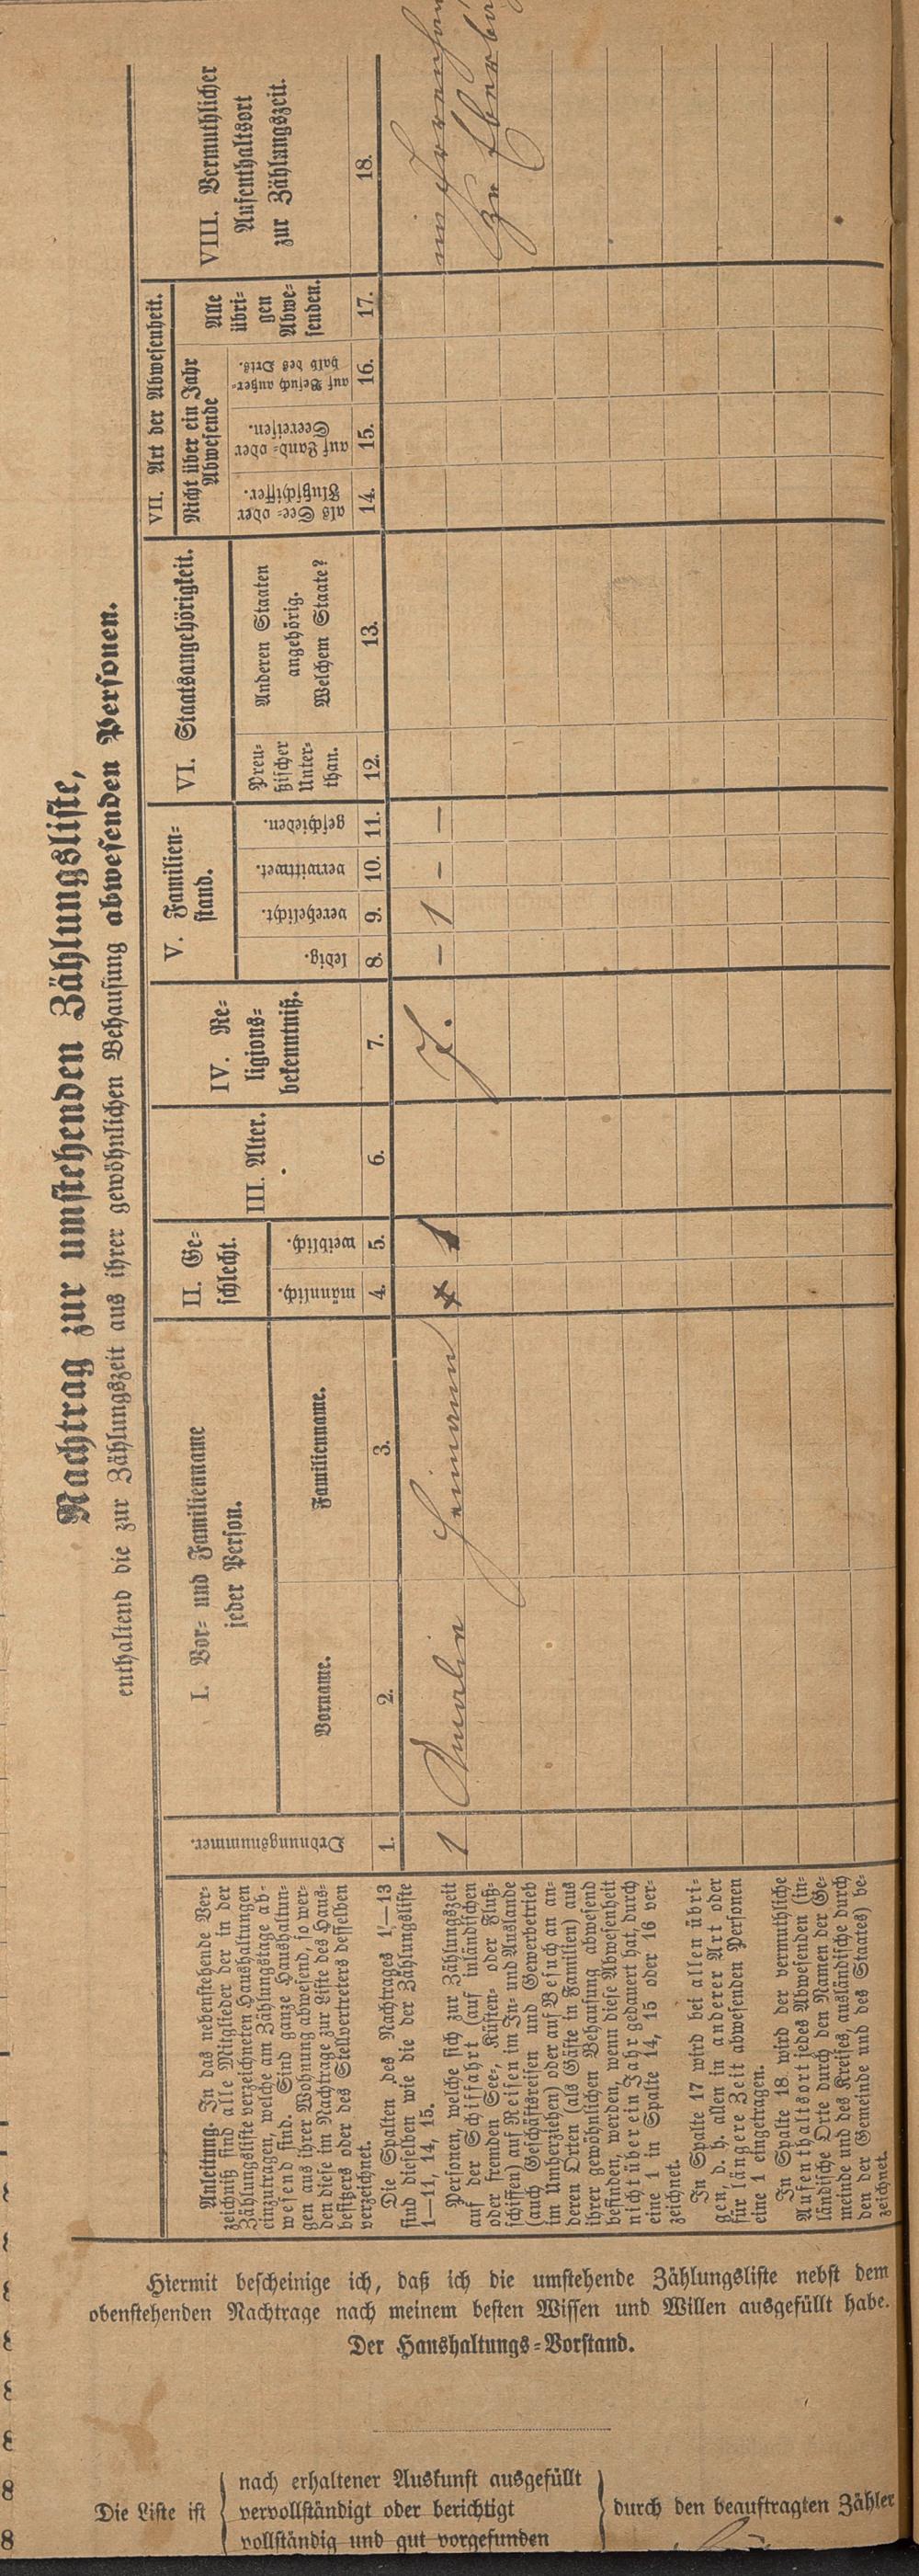 Nachtrag zur umstehenden Zählungsliste,
enthaltend die zur Zählungszeit aus ihrer gewöhnlichen Behausung abwesenden Personen.
Anleitung. In das nebenstehende Ver-
zeichniß sind alle Mitglieder der in der
Zählungsliste verzeichneten Haushaltungen
einzutragen, welche am Zählungstage ab-
wesend sind. Sind ganze Haushaltun-
gen aus ihrer Wohnung abwesend, so wer-
den diese im Nachtrage zur Liste des Haus-
besitzers oder des Stellvertreters desselben
verzeichnet.
Die Spalten des Nachtrages 1—13
sind dieselben wie die der Zählungsliste
1—11, 14, 15.
Personen, welche sich zur Zählungszeit
auf der Schiffahrt (auf inländischen
oder fremden See-, Küsten- oder Fluß-
schiffen) auf Reisen im In- und Auslande
(auch Geschäftsreisen und Gewerbetrieb
im Umherziehen) oder auf Besuch an an-
deren Orten (als Gäste in Familien) aus
ihrer gewöhnlichen Behausung abwesend
befinden, werden, wenn diese Abwesenheit
nicht über ein Jahr gedauert hat, durch
eine 1 in Spalte 14, 15 oder 16 ver-
zeichnet.
In Spalte 17 wird bei allen übri-
gen, d. h. allen in anderer Art oder
für längere Zeit abwesenden Personen
eine 1 eingetragen.
In Spalte 18 wird der vermuthliche
Aufenthaltsort jedes Abwesenden (in-
ländische Orte durch den Namen der Ge-
meinde und des Kreises, ausländische durch
den der Gemeinde und des Staates) be-
zeichnet.
Ordnungsnummer.
1.
I. Vor- und Familienname
jeder Person.
Vorname.
2.
Familienname.
3.
II. Ge-
schlecht.
männlich.
4.
weiblich.
5.
III. Alter.
6.
IV. Re-
ligions-
bekenntniß.
7.
V. Familien-
stand.
ledig.
8.
verehelicht.
9.
verwittwet.
10.
geschieden.
11.
VI. Staatsangehörigkeit.
Preu-
ßischer
Unter-
than.
12.
Anderen Staaten
angehörig.
Welchem Staate?
13.
VII. Art der Abwesenheit.
Nicht über ein Jahr
Abwesende
als See- oder
Flußschiffer.
14.
auf Land- oder
Seereisen.
15.
auf Besuch außer-
halb des Orts.
16.
Alle
übri-
gen
Abwe-
senden.
17.
VIII. Vermuthlicher
Aufenthaltsort
zur Zählungszeit.
18.
1 Amalie Heimann 1 J. – 1 – – im
zu
Hiermit bescheinige ich, daß ich die umstehende Zählungsliste nebst dem
obenstehenden Nachtrage nach meinem besten Wissen und Willen ausgefüllt habe.
Der Haushaltungs-Vorstand.
Die Liste ist
nach erhaltener Auskunft ausgefüllt
vervollständigt oder berichtigt
vollständig und gut vorgefunden
durch den beauftragten Zähler